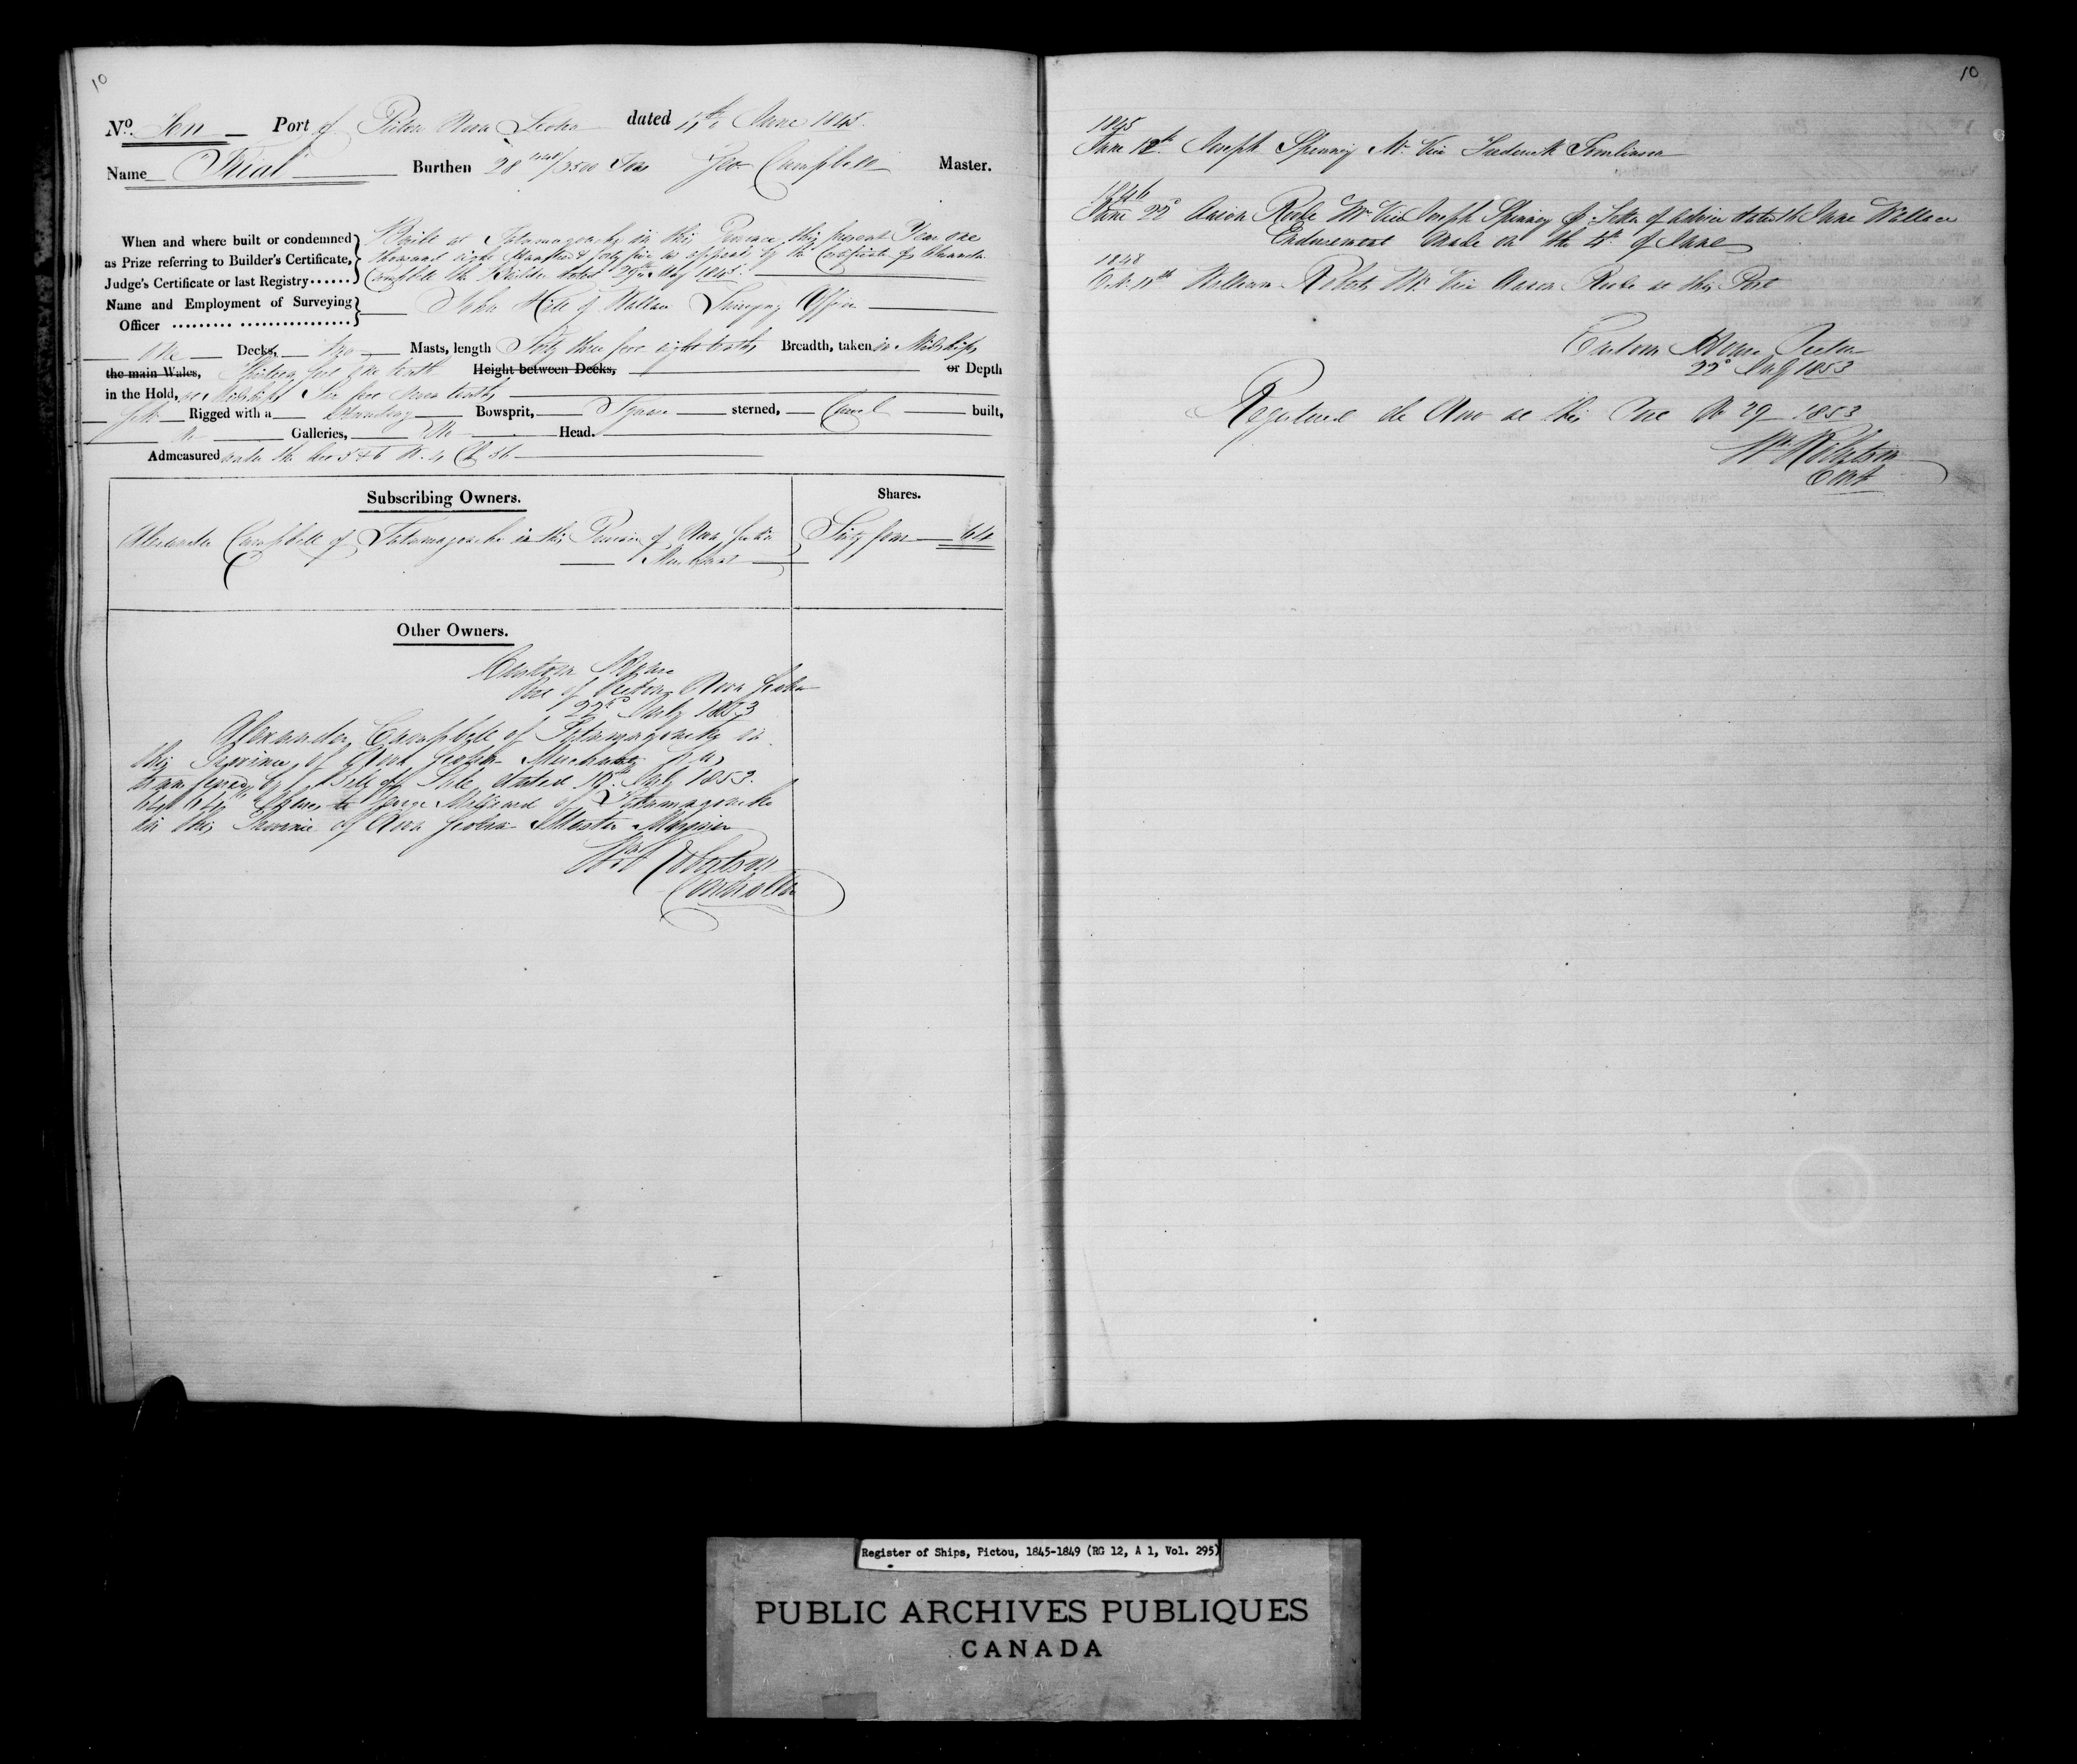 10
No. Ten Port of Pictou Nova Scotia dated 11th June 1845.
Name "Trial" Burthen 28 1148/3500 Tons Geo Campbell Master.
When and where built or condemned as Prize referring to Builder's Certificate, Judge's Certificate or last Registry ......
Built at Tatamagouche in this Province this present Year one
thousand eight Hundred & forty five as appears by the Certificate of Alexander
Campbell the Builder dated 29th May 1845.
Name and Employment of Surveying Officer ......... ................
John Hill of Wallace Surveying Officer
One Decks, Two Masts, length Forty three feet eight tenths Breadth, taken in Midships
the main Wales, Thirteen feet one tenth Height between Decks, or Depth
in the Hold, at Midships Six feet seven tenths
Rigged with a Standing Bowsprit, Square sterned, Carvel built,
No Galleries, No Head.
Admeasured under the Secs 5 & 6 W. 4 C 56
Subscribing Owners. Shares.
Alexander Campbell of Tatamagouche in this Province of Nova Scotia Sixty four 64
Merchant
Other Owners.
Custom House
Port of Pictou Nova Scotia
22nd July 1853
Alexander Campbell of Tatamagouche in
this Province of Nova Scotia Merchant has
transferred by Bill of Sale dated 18th July 1853.
Shares to George Millard of Tatamagouche
in this Province of Nova Scotia Master Mariner
Wm Robertson
Controller
10
1845
June 12th Joseph Spinney Mr. Vice Frederick Tomlinson
1846
June 22d Aaron Roode Mr Vice Joseph Spinney p. Letter of Advice dated 16 June Wallace
Endorsement Made on the 4th of June
1848
Oct. 11th William Roberts Mr Vice Aaron Roode at this Port
Custom House Pictou
22d July 1853
Registered de Novo at this Port No 29 1853
Wm Robertson
Cont
Register of Ships, Pictou, 1845-1849 (RG 12, A 1, Vol. 295)
PUBLIC ARCHIVES PUBLIQUES
CANADA